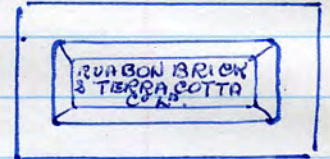 RUABON BRICK
& TERRA COTTA
Co LD.